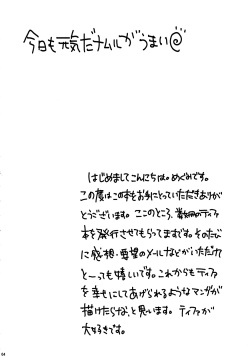 今日も元気だナムルがうまい@
はじめましてこんにちは。めぐみです。
この度はこの本をお手にとっていただきありが
とうございます。ここのところ、数冊のティファ
本を発行させてもらってますです。そのたび
に感想・要望のメールなどがいただけて
と〜っても嬉しいです。これからもティファ
を幸せにしてあげられるようなマンガが
描けたらな、と思います。ティファが
大好きです。
04